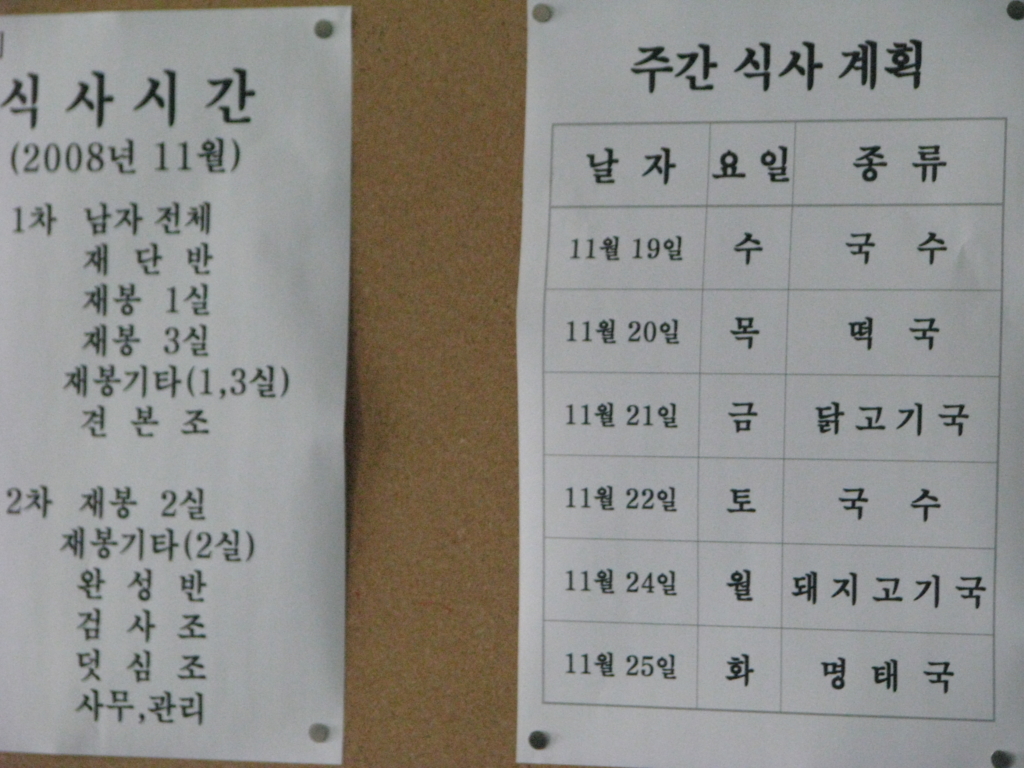 식 사 시 간
(2008년 11월)
1차 남자 전체
재 단 반
재봉 1실
재봉 3실
재봉기타(1,3실)
견 본 조
2차 재봉 2실
재봉기타(2실)
완 성 반
검 사 조
덧 심 조
사무,관리
주간 식사 계획
날 자 요 일 종 류
11월 19일 수 국 수
11월 20일 목 떡 국
11월 21일 금 닭 고 기 국
11월 22일 토 국 수
11월 24일 월 돼 지 고 기 국
11월 25일 화 명 태 국